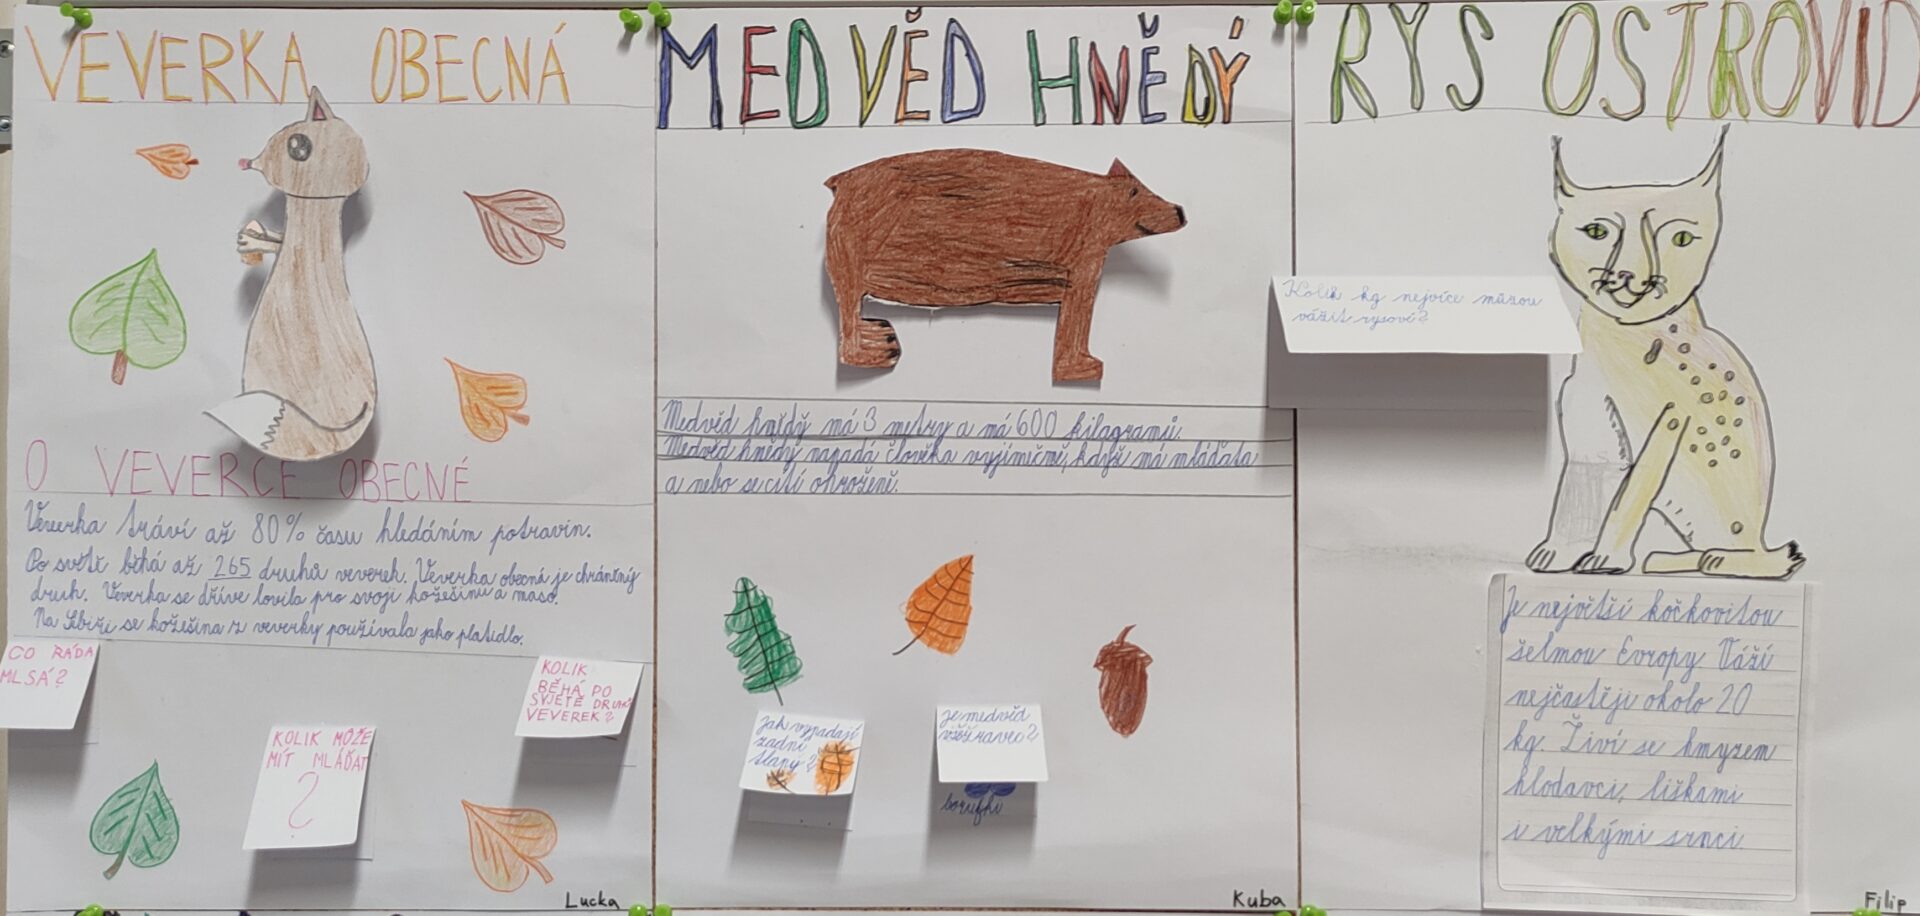 VEVERKA OBECNÁ
O VEVERCE OBECNÉ
Veverka tráví až 80% času hledáním potravin.
Po světě běhá až 265 druhů veverek. Veverka obecná je chráněný
druh. Veverka se dříve lovila pro svoji kožešinu a maso.
Na Sibiři se kožešina z veverky používala jako platidlo.
CO RÁDA
MLSÁ?
KOLIK MŮŽE
MÍT MLÁĎAT
?
KOLIK
BĚHÁ PO
SVJETĚ DRUHŮ
VEVEREK?
Lucka
MEDVĚD HNĚDÝ
Medvěd hnědý má 3 metry a má 600 kilogramů.
Medvěd hnědý napadá člověka vyjímičně, když má mláďata
a nebo se cítí ohroženě.
Jak vypadají
zadní
tlapy?
je medvěd
borůfki
Kuba
RYS OSTROVID
Kolik kg nejvíce můzou
vážit rysové?
Je největší kočkovitou
šelmou Evropy Váží
nejčastěji okolo 20
kg. Živí se hmyzem
hlodavci, liškami
i velkými srnci
Filip